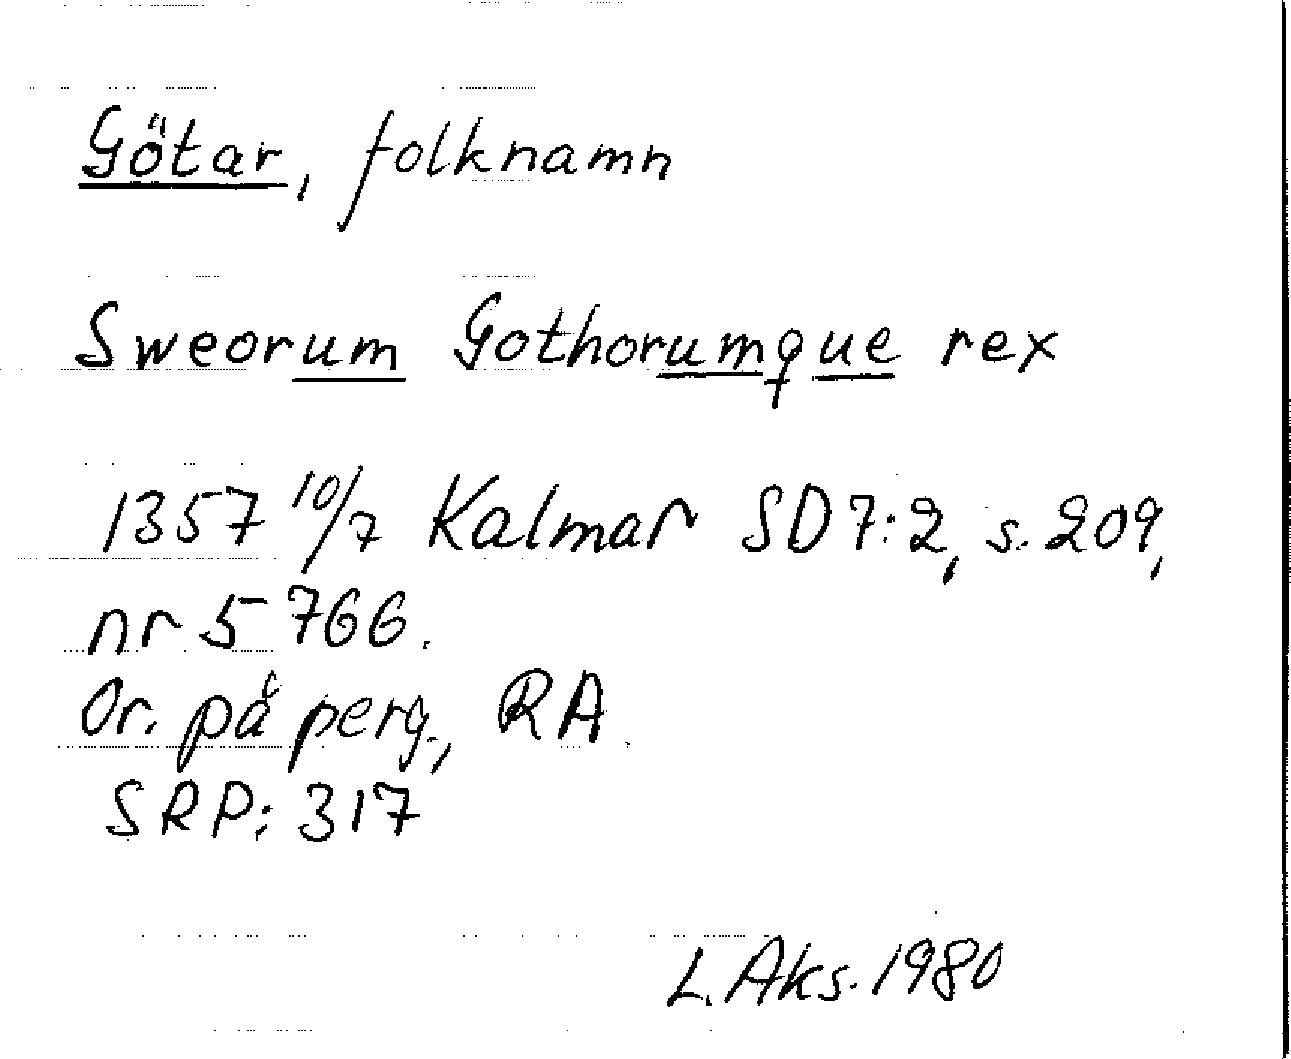 Götar, folknamn
Sweorum Gothorumque rex
1357 10/7 Kalmar SD 7:2, s. 209,
nr 5766.
Or. på perg., RA.
SRP: 317
L. Aks. 1980